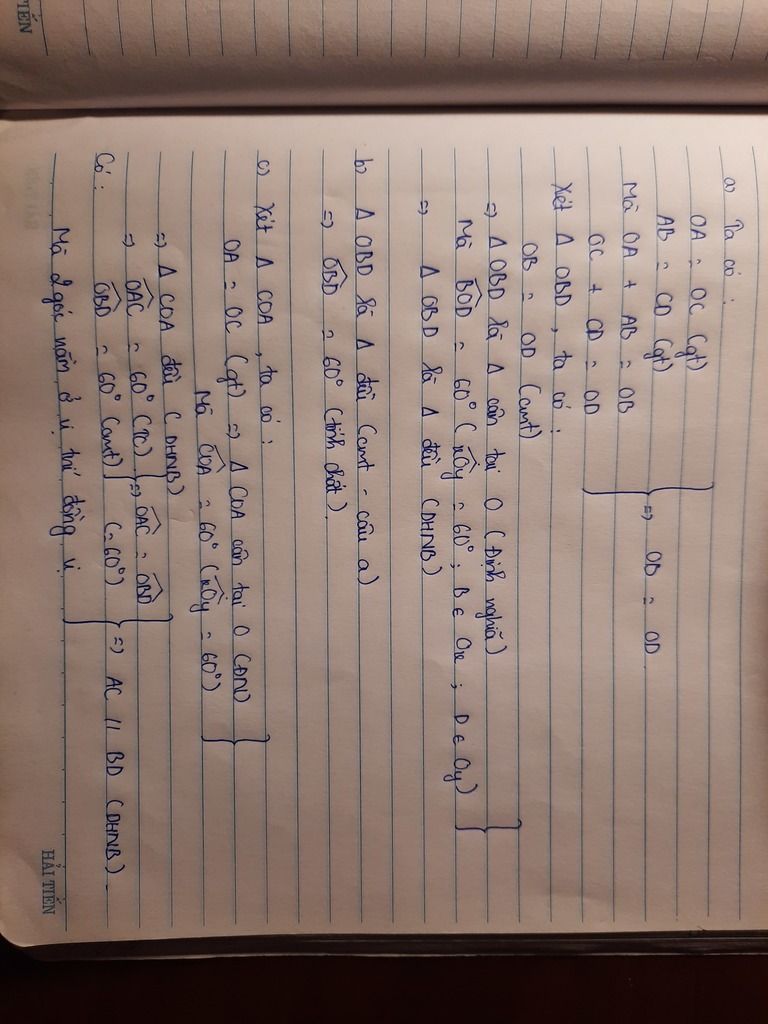 TIẾN
a) Ta có :
OA = OC (gt)
AB = CD (gt)
Mà OA + AB = OB
OC + CD = OD
=> OB = OD
Xét Δ OBD, ta có :
OB = OD (cmt)
=> Δ OBD là Δ cân tại O (Định nghĩa)
Mà BOD = 60° (xOy = 60° ; B ∈ Ox ; D ∈ Oy)
=> Δ OBD là Δ đều (DHNB)
b) Δ OBD là Δ đều (cmt - câu a)
=> OBD = 60° (tính chất).
c) Xét Δ COA, ta có :
OA = OC (gt) => Δ COA cân tại O (ĐN)
Mà COA = 60° (xOy = 60°)
=> Δ COA đều (DHNB)
=> OAC = 60° (TC) => OAC = OBD
Có : OBD = 60° (cmt) (=60°) => AC // BD (DHNB).
Mà 2 góc nằm ở vị trí đồng vị
HẢI TIẾN